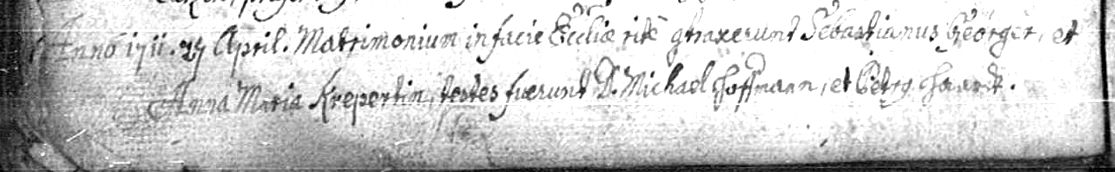 Anno 1711. 27 April. Matrimonium in facie Eccliæ rite gtraxerunt Sebastianus Georger, et
Anna Maria Krepertin, testes fuerunt D. Michael Hoffmann, et Petrg